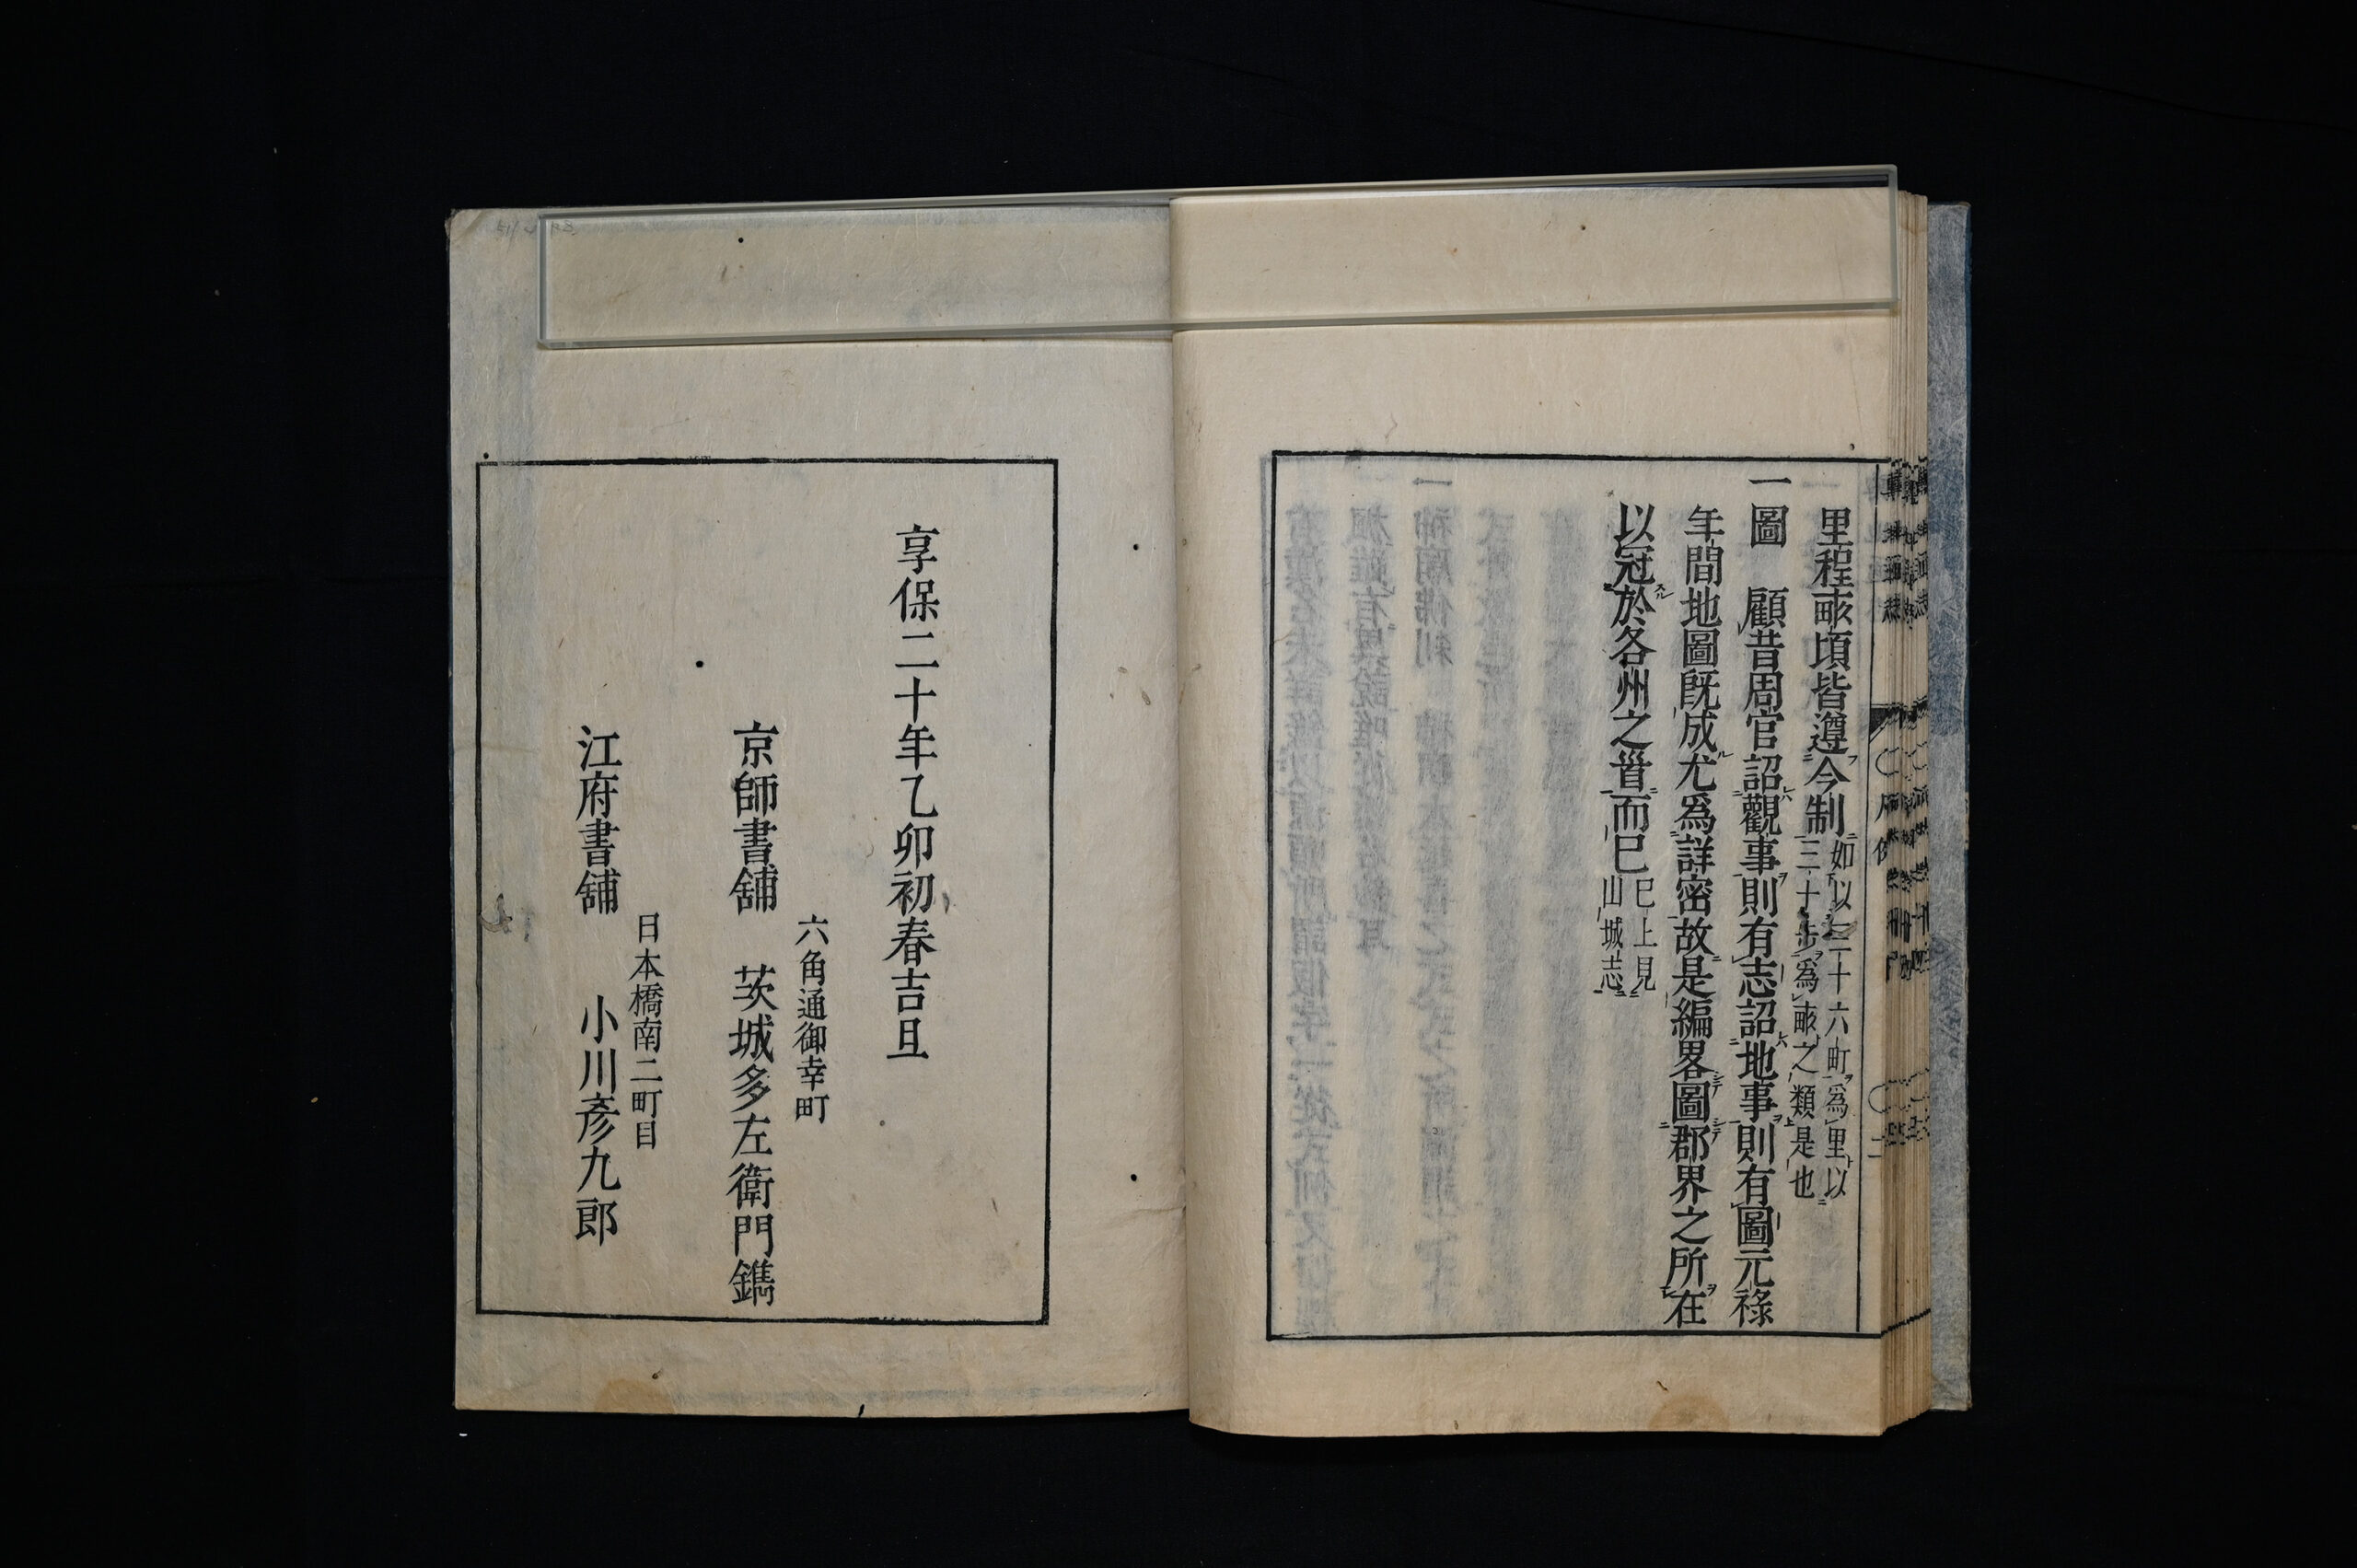 里程畝頃皆遵今制如以三十六町為里以三十歩為畝之類是也
一圖　顧昔周官詔觀事則有志詔地事則有圖元祿
年間地圖既成尤爲詳密故是編畧圖郡界之所在
以冠於各州之首而已已上見山城志
凡例
二
享保二十年乙卯初春吉旦
六角通御幸町
京師書舗　茨城多左衛門鐫
日本橋南二町目
江府書舗　小川彦九郎